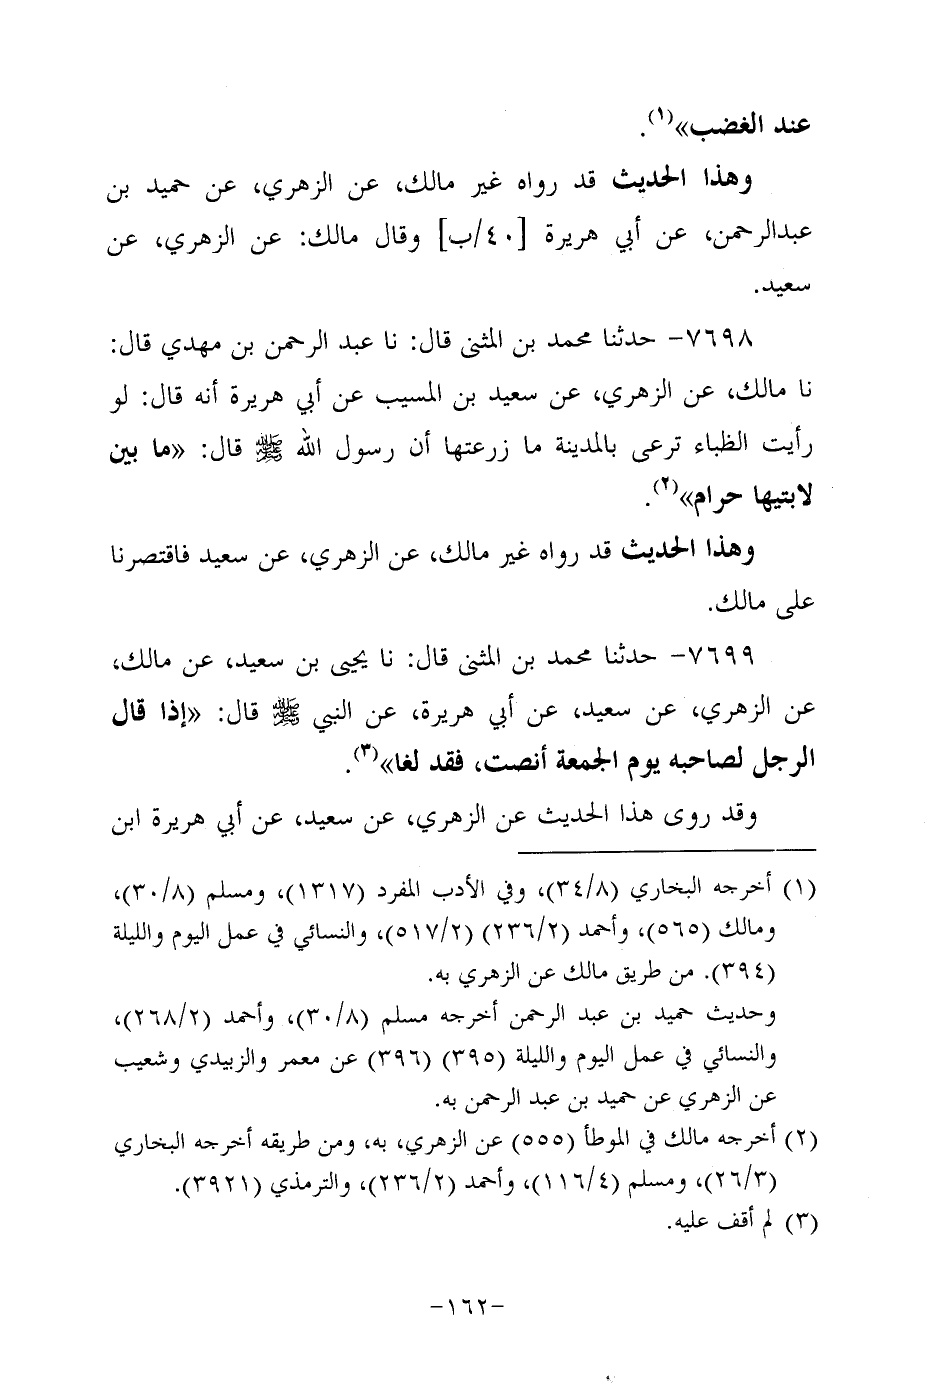 عند الغضب»(١).
وهذا الحديث قد رواه غير مالك، عن الزهري، عن حميد بن
عبدالرحمن، عن أبي هريرة [٤٠/ب] وقال مالك: عن الزهري، عن
سعيد.
٧٦٩٨- حدثنا محمد بن المثنى قال: نا عبد الرحمن بن مهدي قال:
نا مالك، عن الزهري، عن سعيد بن المسيب عن أبي هريرة أنه قال: لو
رأيت الظباء ترعى بالمدينة ما زرعتها أن رسول الله ﷺ قال: «ما بين
لابتيها حرام»(٢).
وهذا الحديث قد رواه غير مالك، عن الزهري، عن سعيد فاقتصرنا
على مالك.
٧٦٩٩- حدثنا محمد بن المثنى قال: نا يحيى بن سعيد، عن مالك،
عن الزهري، عن سعيد، عن أبي هريرة، عن النبي ﷺ قال: «إذا قال
الرجل لصاحبه يوم الجمعة أنصت، فقد لغا»(٣).
وقد روى هذا الحديث عن الزهري، عن سعيد، عن أبي هريرة ابن
(١) أخرجه البخاري (٣٤/٨)، وفي الأدب المفرد (١٣١٧)، ومسلم (٣٠/٨)،
ومالك (٥٦٥)، وأحمد (٢٣٦/٢) (٥١٧/٢)، والنسائي في عمل اليوم والليلة
(٣٩٤). من طريق مالك عن الزهري به.
وحديث حميد بن عبد الرحمن أخرجه مسلم (٣٠/٨)، وأحمد (٢٦٨/٢)،
والنسائي في عمل اليوم والليلة (٣٩٥) (٣٩٦) عن معمر والزبيدي وشعيب
عن الزهري عن حميد بن عبد الرحمن به.
(٢) أخرجه مالك في الموطأ (٥٥٥) عن الزهري، به، ومن طريقه أخرجه البخاري
(٢٦/٣)، ومسلم (١١٦/٤)، وأحمد (٢٣٦/٢)، والترمذي (٣٩٢١).
(٣) لم أقف عليه.
-١٦٢-